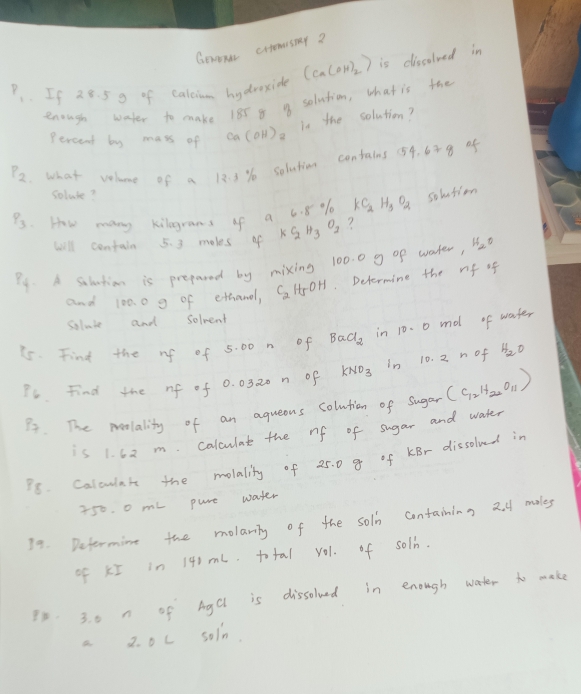 GENERAL CHEMISTRY 2
P1. If 28.5 g of calcium hydroxide (Ca(OH)2) is dissolved in
enough water to make 185 g of solution, what is the
Percent by mass of Ca(OH)2 in the solution?
P2. What volume of a 12.3 % solution contains 54.67 g of
solute?
P3. How many kilograms of a 6.8 % KC2H3O2 solution
will contain 5.3 moles of KC2H3O2?
P4. A Solution is prepared by mixing 100.0 g of water, H2O
and 100.0 g of ethanol, C2H5OH. Determine the nf of
Solute and Solvent
P5. Find the nf of 5.00 n of BaCl2 in 10.0 mol of water
P6. Find the nf of 0.0320 n of KNO3 in 10.2 n of H2O
P7. The molality of an aqueous solution of sugar (C12H22O11)
is 1.62 m. Calculate the nf of sugar and water
P8. Calculate the molality of 25.0 g of KBr dissolved in
750.0 mL pure water
P9. Determine the molarity of the sol'n containing 2.4 moles
of KI in 140 mL. total vol. of sol'n.
P10. 3.0 n of AgCl is dissolved in enough water to make
a 2.0 L sol'n.